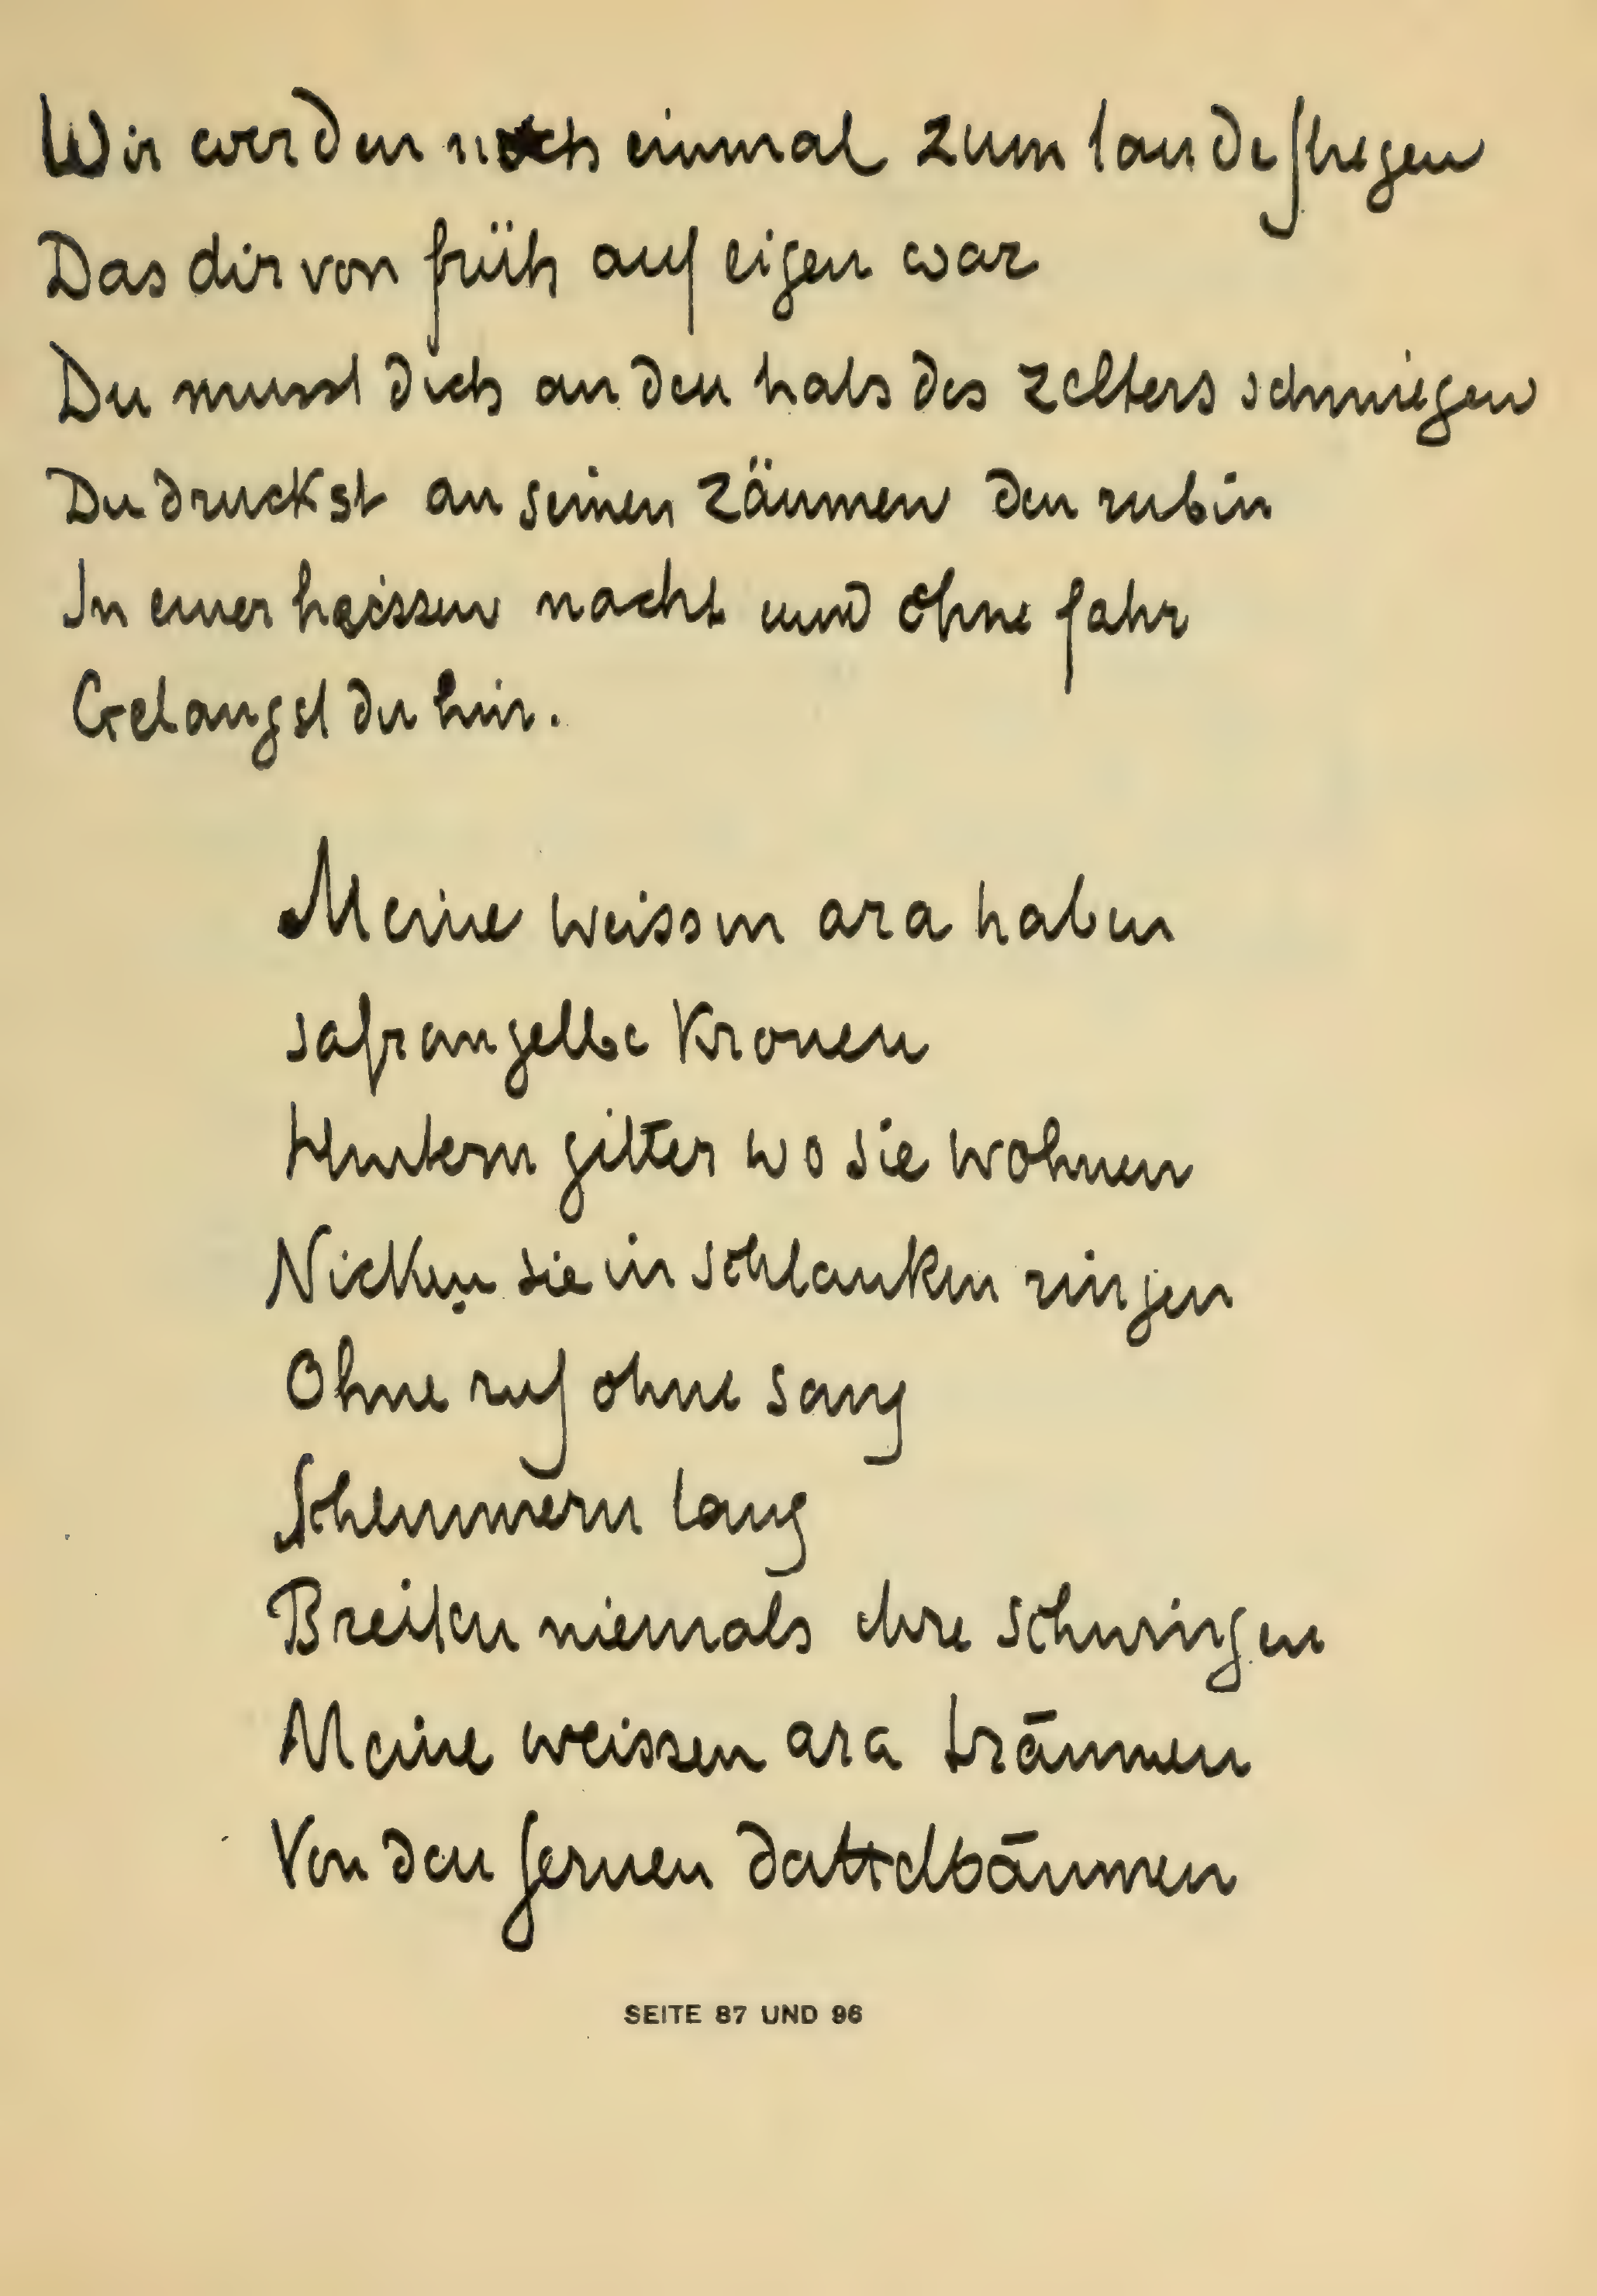 Wir werden noch einmal zum lande fliegen
Das dir von früh auf eigen war
Du musst dich an den hals des zelters schmiegen
Du druckst an seinen zäumen den rubin
In einer heissen nacht und ohne fahr
Gelangst du hin.
Meine weissen ara haben
safrangelbe Kronen
Hintern gitter wo sie wohnen
Nicken sie in schlanken ringen
Ohne ruf ohne sang
Schlummern lang
Breiten niemals ihre schwingen
Meine weissen ara träumen
Von den fernen dattelbäumen
SEITE 87 UND 96